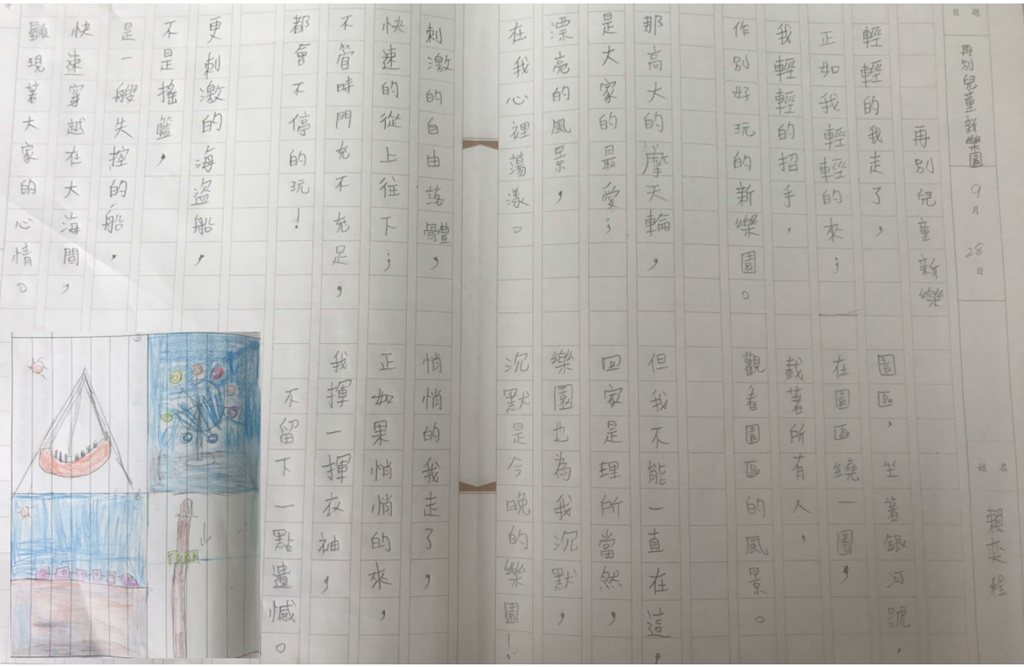 題目
再別兒童新樂園
9月28日
姓名
賴奕程
再別兒童新樂
輕輕的我走了，
正如我輕輕的來；
我輕輕的招手，
作別好玩的新樂園。
那高大的摩天輪，
是大家的最愛；
漂亮的風景，
在我心裡蕩漾。
刺激的自由落體，
快速的從上往下；
不管時門充不充足，
都會不停的玩！
更刺激的海盜船，
不是搖籃，
是一艘失控的船，
快速穿越在大海間，
顯現著大家的心情。
園區，坐著銀河號，
在園區繞一圍，
載著所有人，
觀看園區的風景。
但我不能一直在這，
回家是理所當然，
樂園也為我沉默，
沉默是今晚的樂園！
悄悄的我走了，
正如果悄悄的來，
我揮一揮衣袖，
不留下一點遺憾。